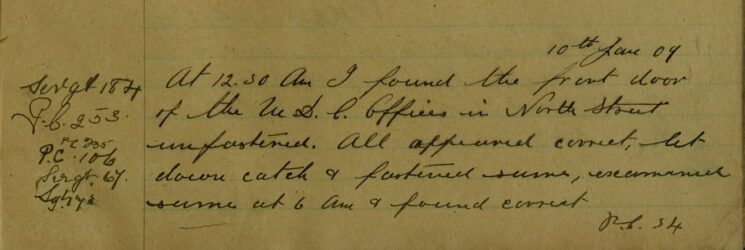 10th Jan 09
Sergt 184
At 12.30 Am I found the front door
P.C. 253
of the U.D.C. Offices in North Street
P.C 335
unfastened. All appeared correct, let
P.C. 106
down catch & fastened same, examined
Sergt. 67.
same at 6 Am & found correct
Sgt
P.C. 34